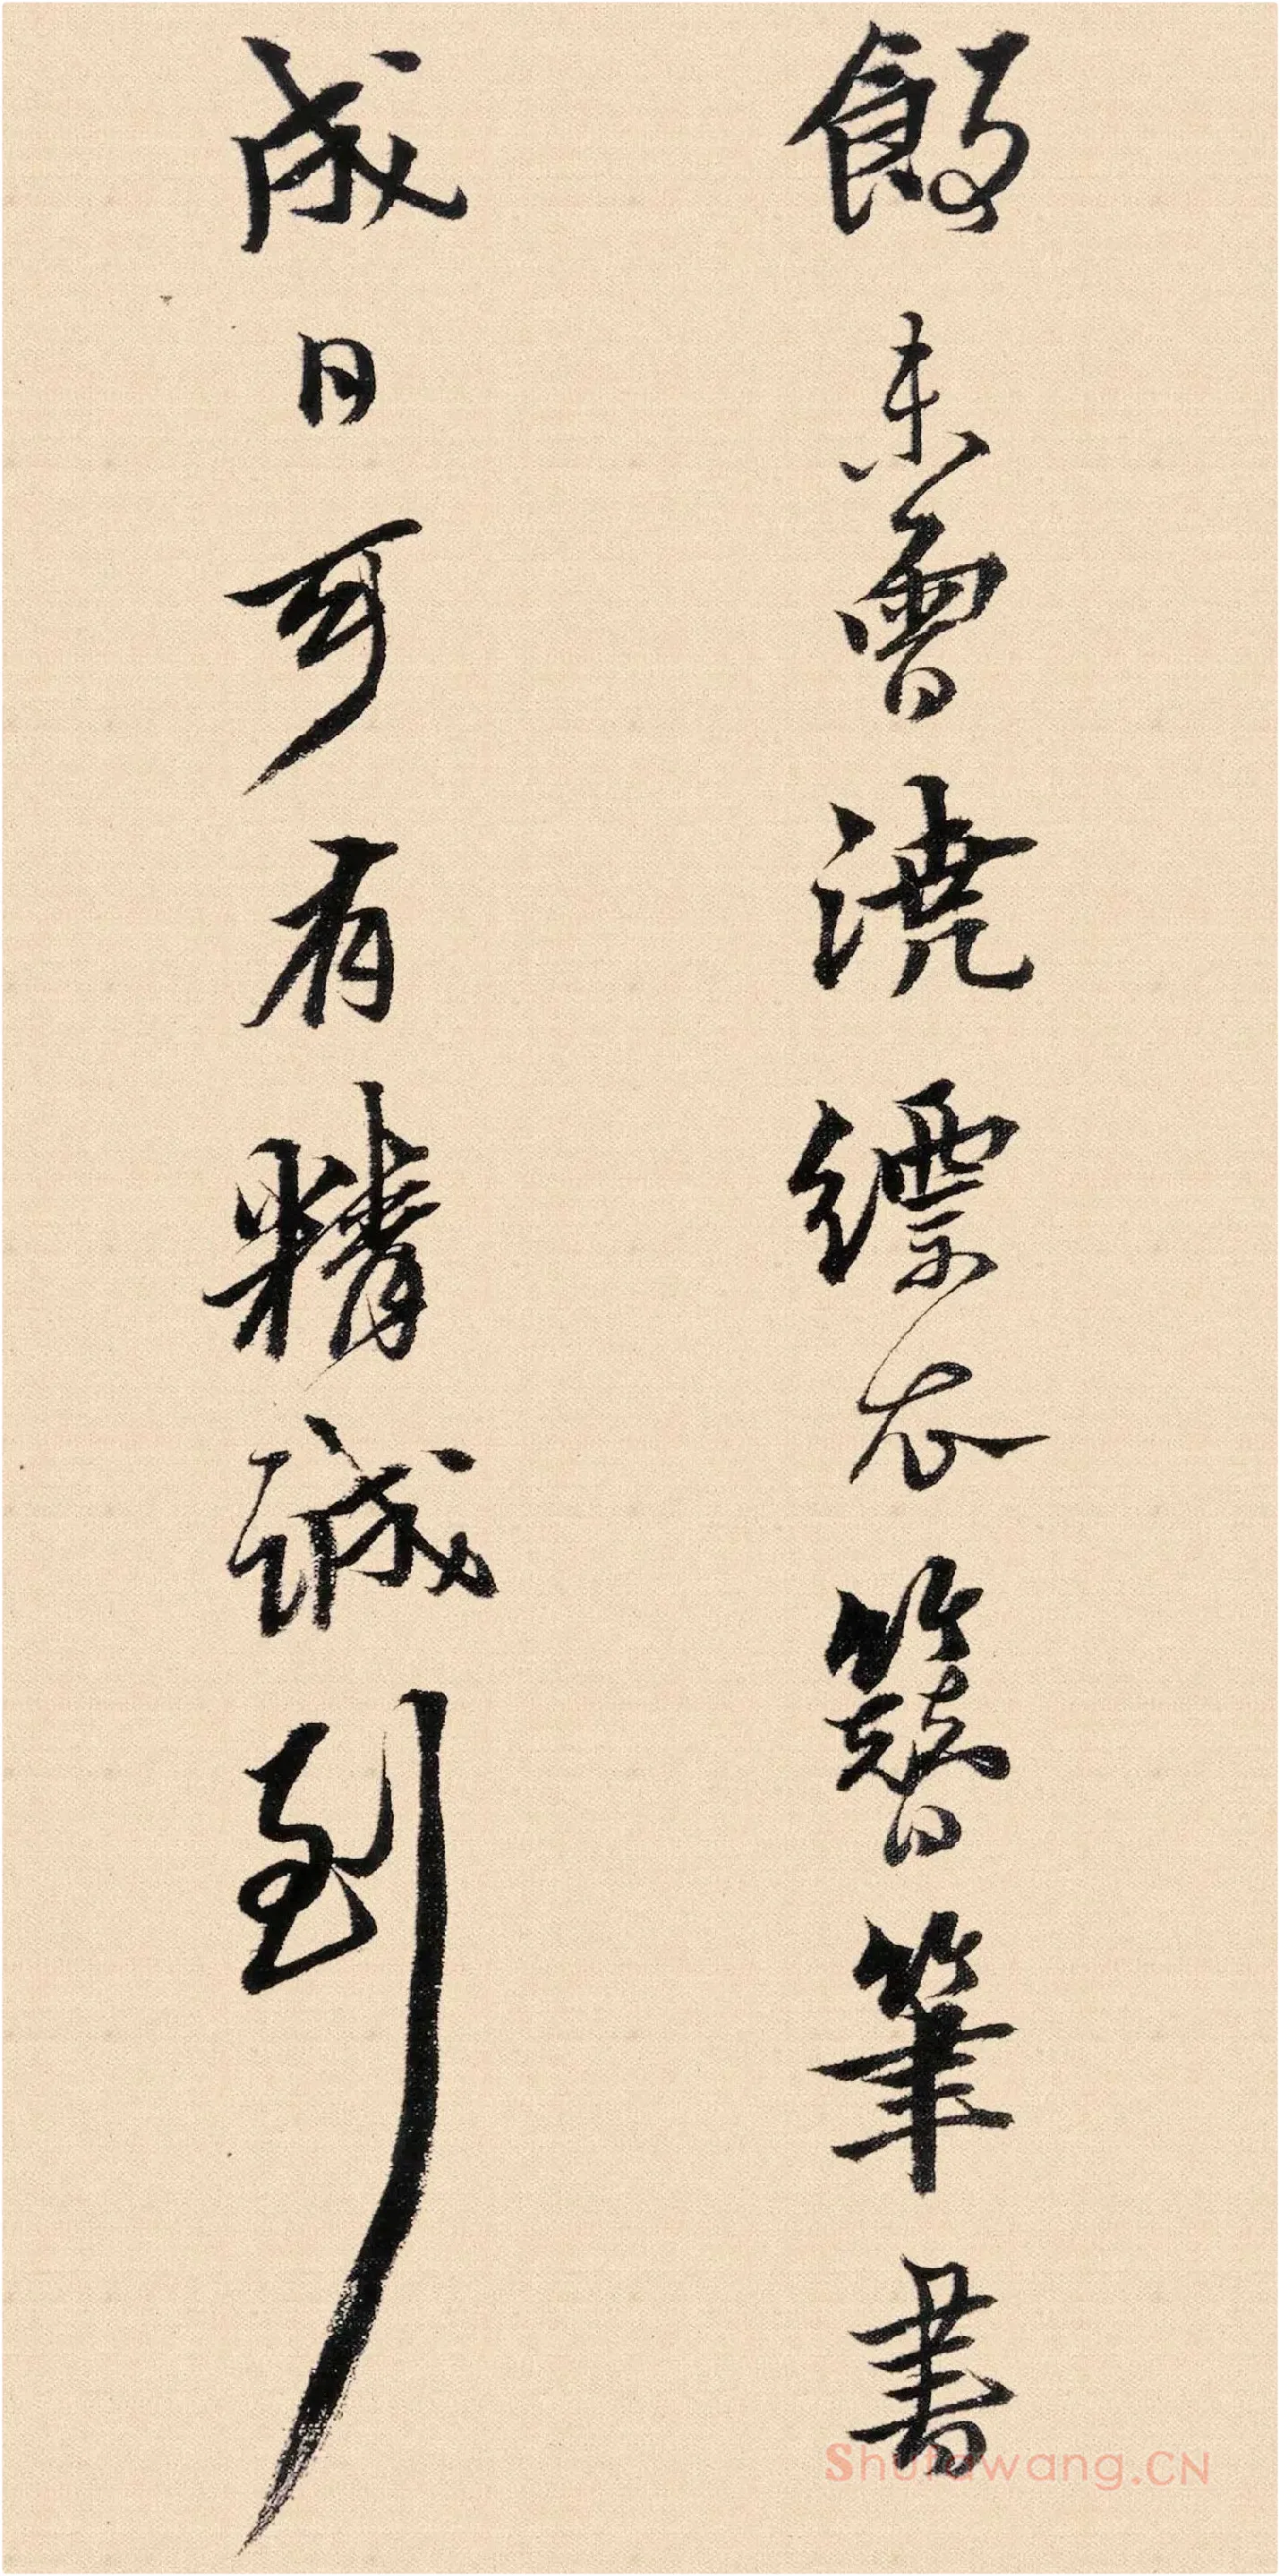 餉未曾澆縹衣簪筆書
成日可有精誠到
Shufawang.CN